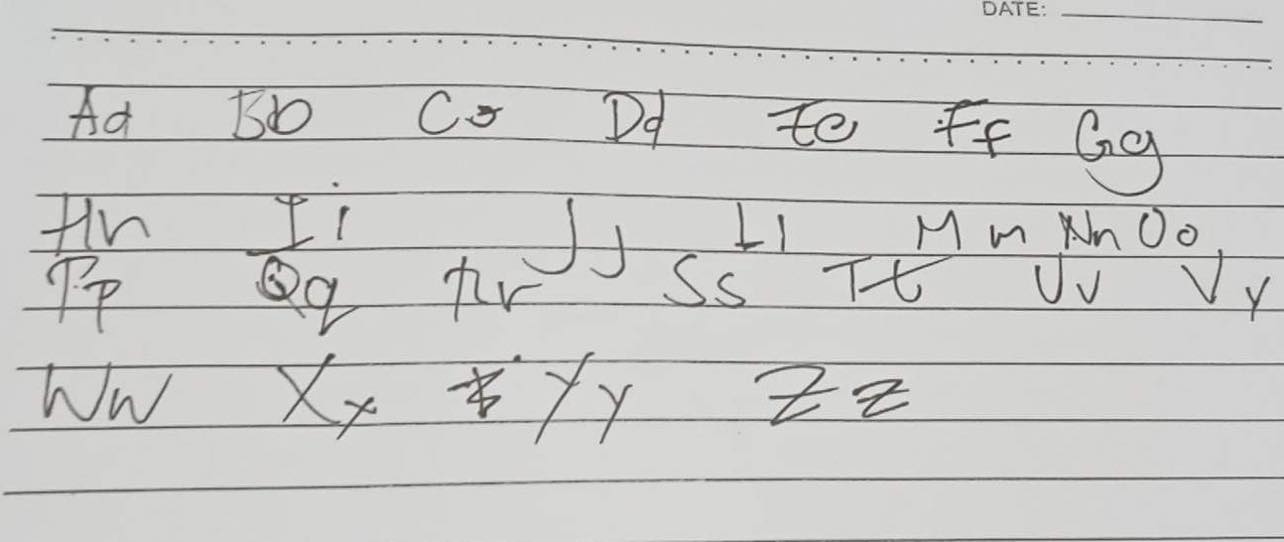 DATE:
Aa Bb Cc Dd Ee Ff Gg
Hh Ii Jj Ll Mm Nn Oo
Pp Qq Rr Ss Tt Uu Vv
Ww Xx Yy Zz